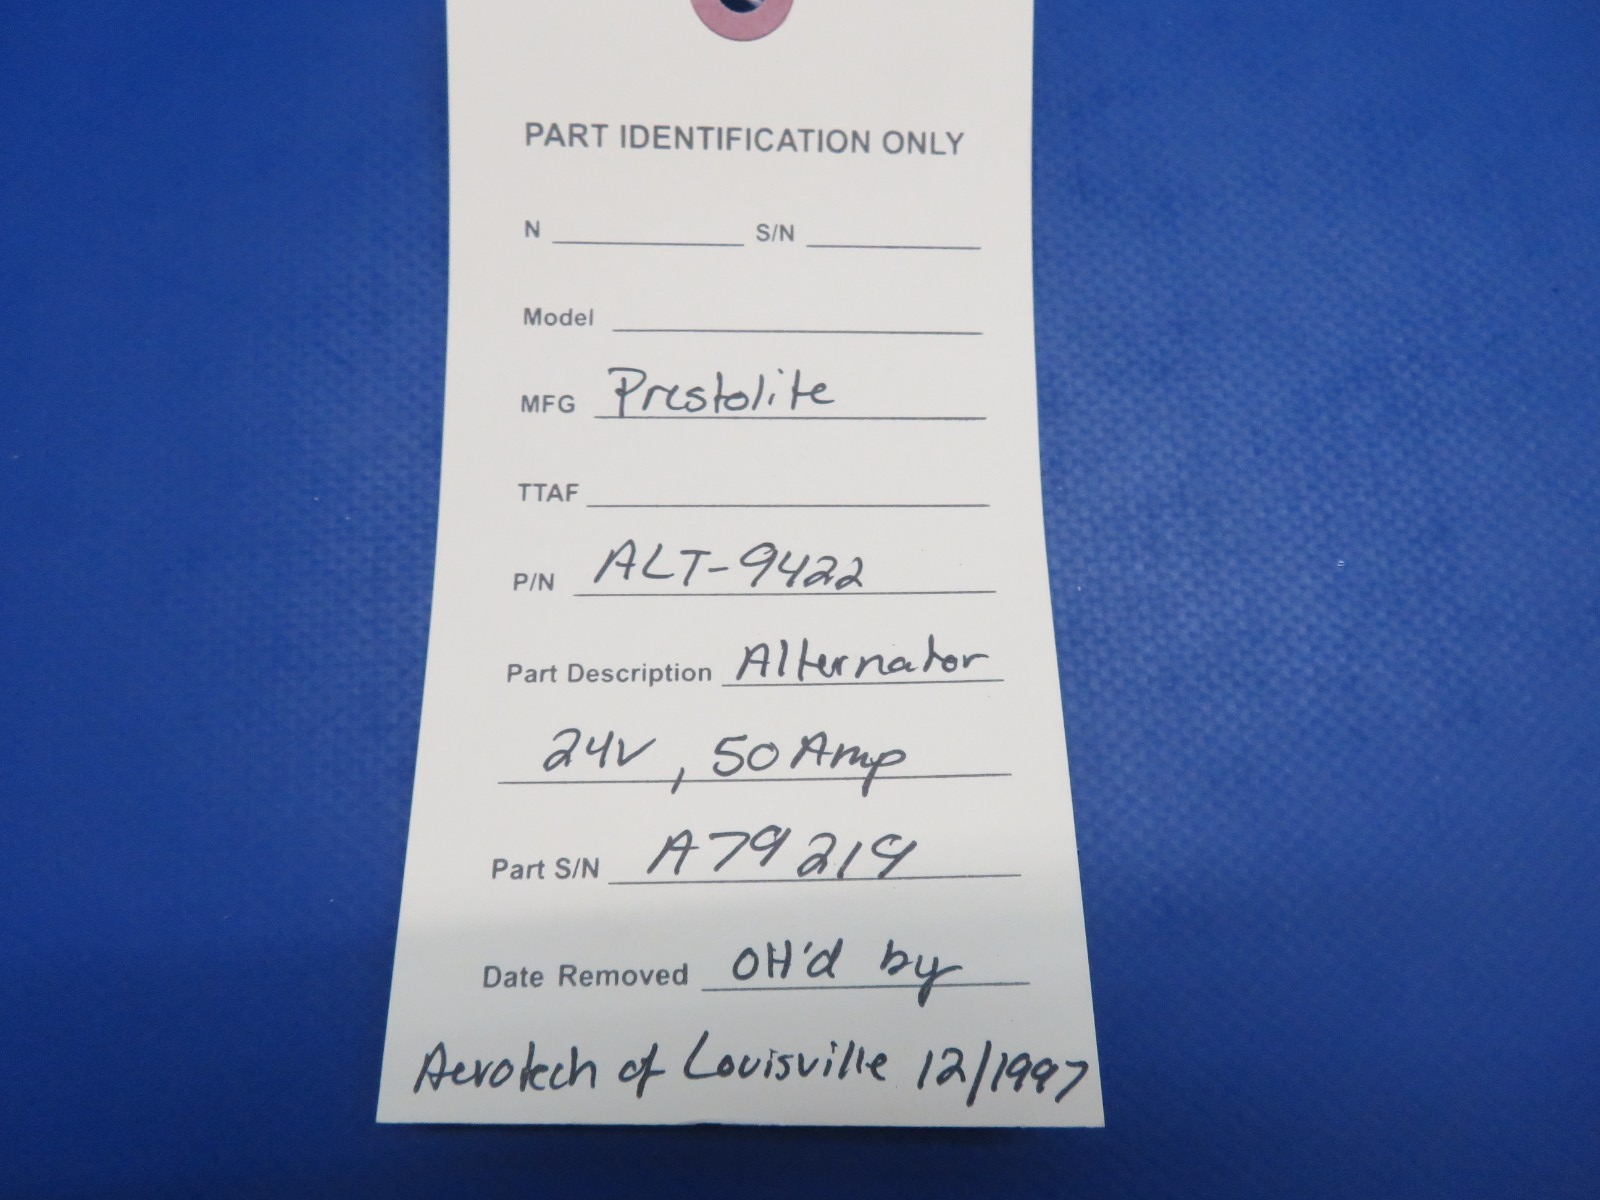 PART IDENTIFICATION ONLY
N S/N
Model
MFG Prestolite
TTAF
P/N ALT-9422
Part Description Alternator
24V, 50 Amp
Part S/N A79219
Date Removed OH'd by
Aerotech of Louisville 12/1997